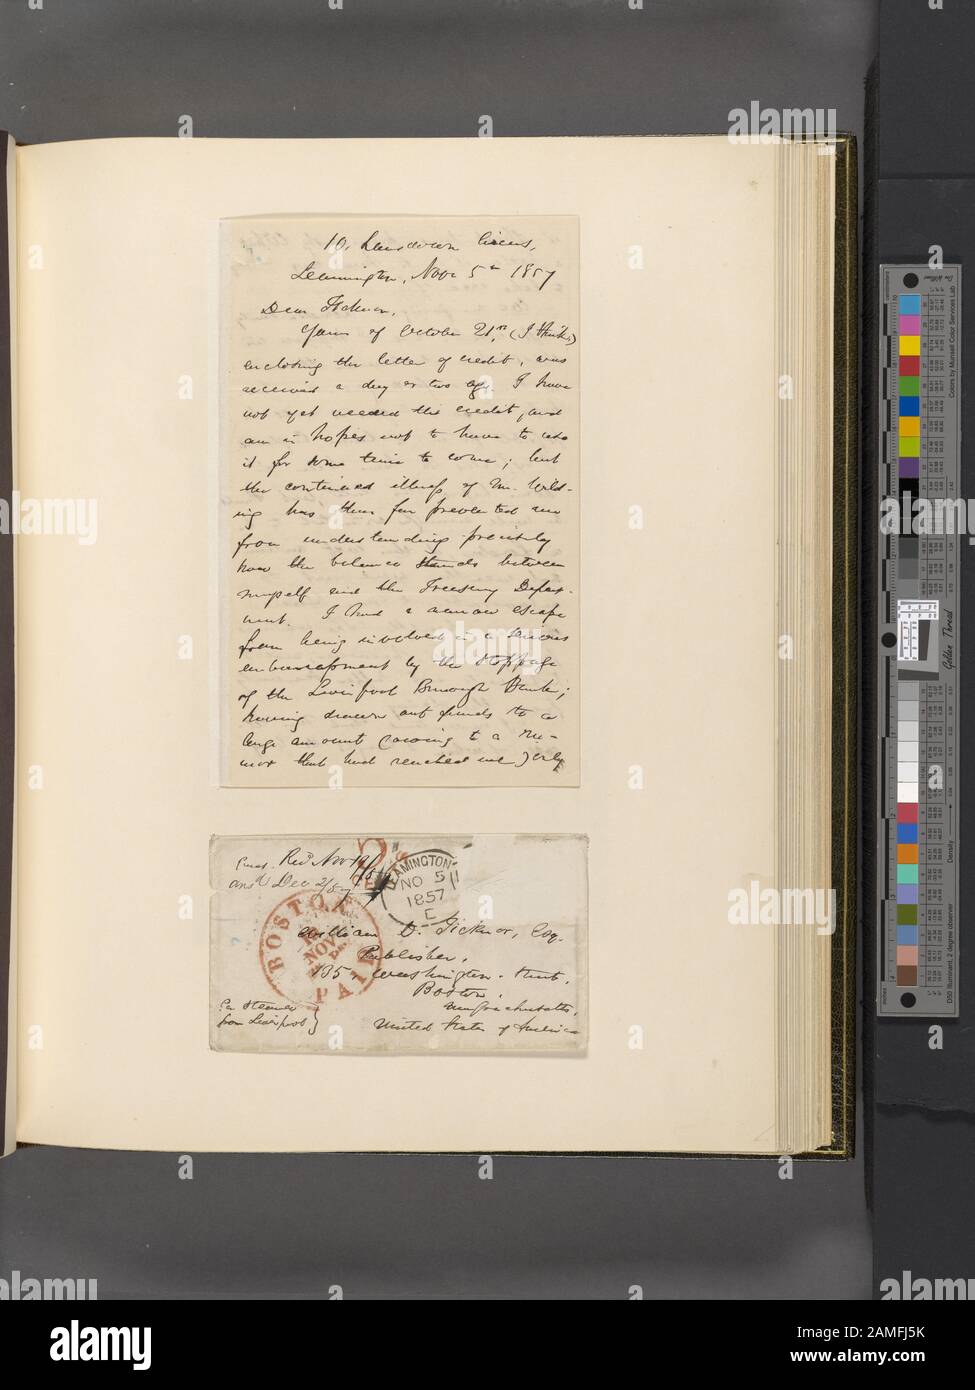 10, Lansdown Circus,
Leamington, Novr 5th 1857
Dear Ticknor,
Yours of October 21st, (I think)
enclosing the letter of credit, was
received a day or two ago. I have
not yet needed the credit, and
am in hopes not to have to use
it for some time to come; but
the continued illness of Mr. Wild-
ing has thus far prevented me
from understanding precisely
how the balance stands between
myself and the Treasury Depart-
ment. I had a narrow escape
from being involved in a serious
embarrassment by the stoppage
of the Liverpool Borough Bank;
having drawn out funds to a
large amount (owing to a ru-
mor that had reached me) only
Recd Nov 19/57
ansd Dec 2/57
LEAMINGTON
NO 5
1857
E
BOSTON
NOV
PAID
William D. Ticknor, Esq.
Publisher,
135, Washington Street,
Boston,
Massachusetts,
United States of America
Per Steamer
from Liverpool
Golden Thread
Colors by Munsell Color Services Lab
Density
alamy
Image ID: 2AMFJ5K
www.alamy.com